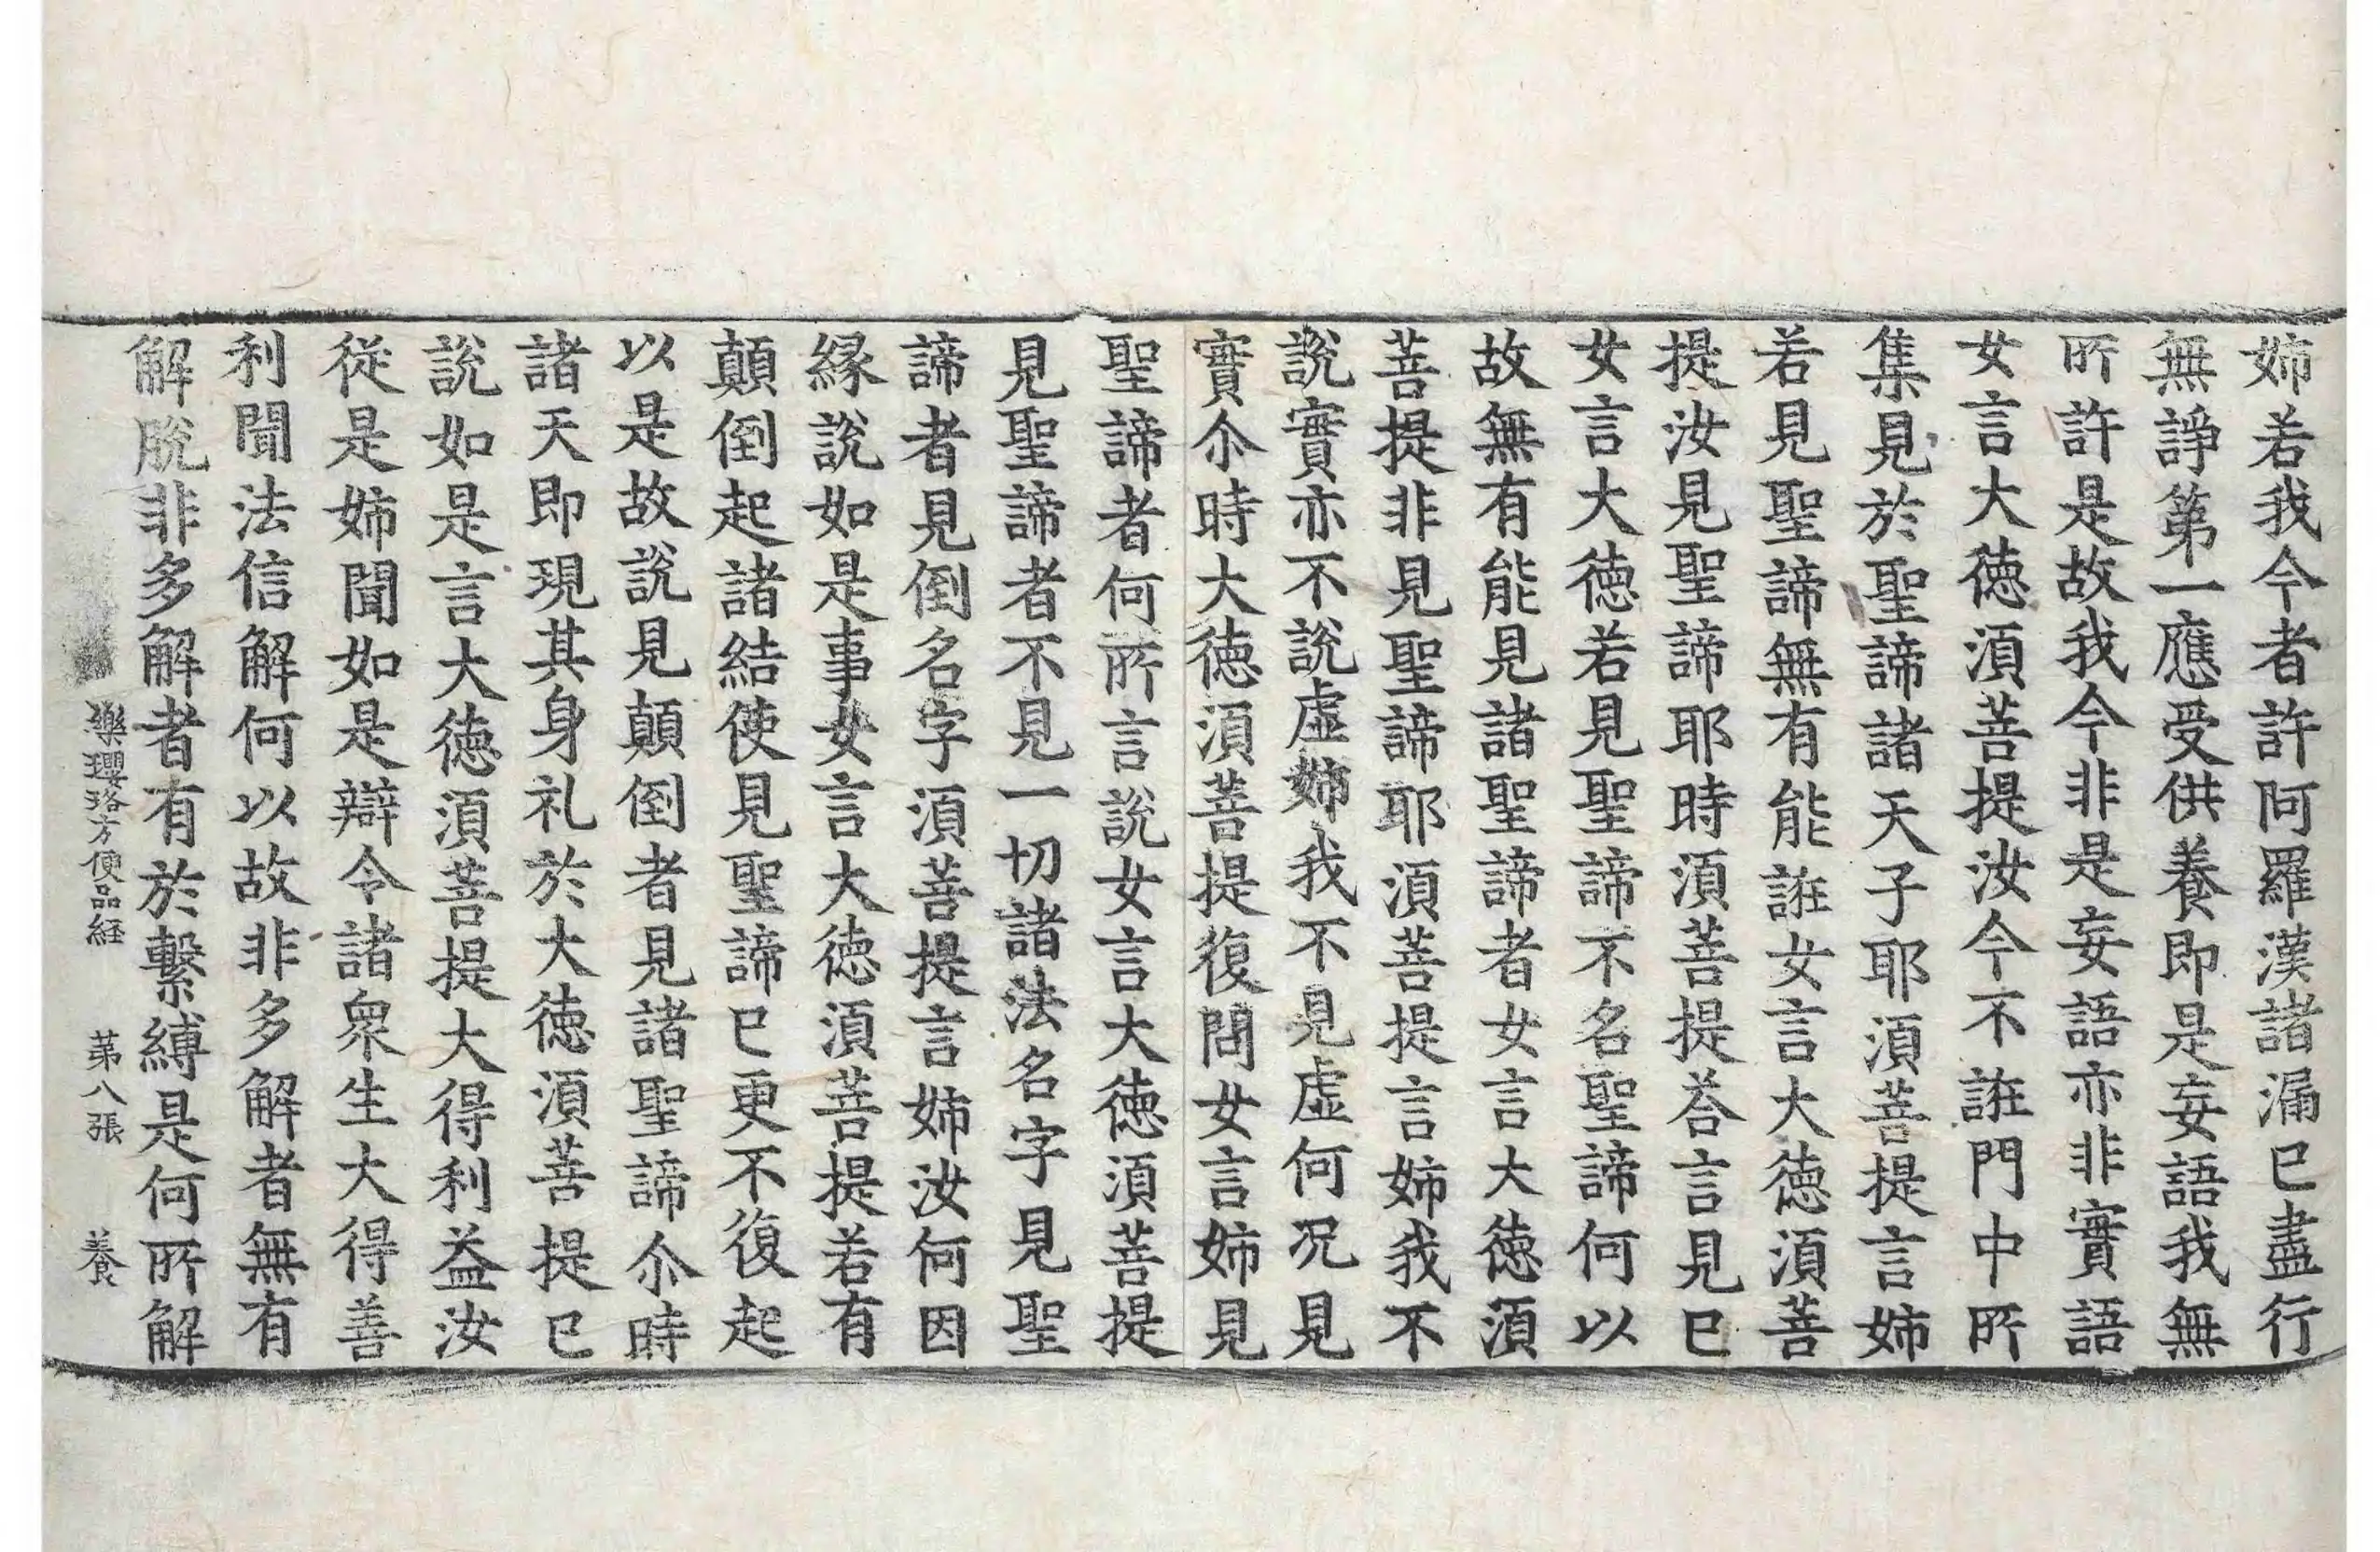 姉若我今者許阿羅漢諸漏已盡行
無諍第一應受供養即是妄語我無
所許是故我今非是妄語亦非實語
女言大徳湏菩提汝今不誑門中所
集見於聖諦諸天子耶湏菩提言姉
若見聖諦無有能誑女言大徳湏菩
提汝見聖諦耶時湏菩提荅言見已
女言大徳若見聖諦不名聖諦何以
故無有能見諸聖諦者女言大徳湏
菩提非見聖諦耶湏菩提言姉我不
說實亦不說虛姉我不見虛何况見
實尒時大徳湏菩提復問女言姉見
聖諦者何所言說女言大徳湏菩提
見聖諦者不見一切諸法名字見聖
諦者見倒名字湏菩提言姉汝何因
緣說如是事女言大徳湏菩提若有
顛倒起諸結使見聖諦已更不復起
以是故說見顛倒者見諸聖諦尒時
諸天即現其身礼於大徳湏菩提已
說如是言大徳湏菩提大得利益汝
從是姉聞如是辯令諸衆生大得善
利聞法信解何以故非多解者無有
解脫非多解者有於繫縛是何所解
樂瓔珞方便品経　第八張　養